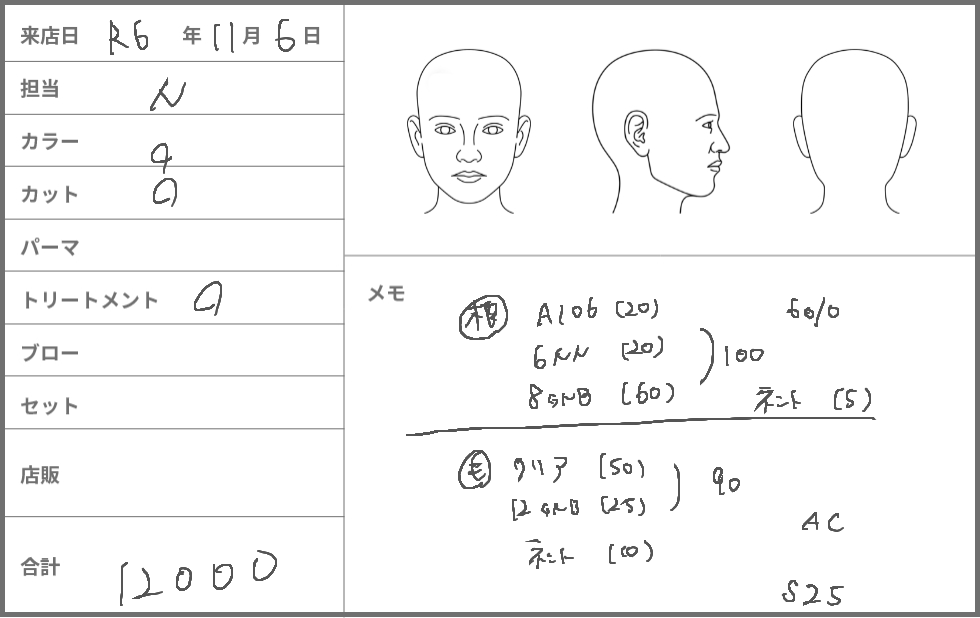 来店日 R6 年 11 月 6 日
担当 N
カラー a
カット a
パーマ
トリートメント a
ブロー
セット
店販
合計 12000
メモ
根 A106 (20) 60/0
6NN (20)
8GNB (60) 100
ネント (5)
毛 クリア (50)
12GNB (25) 90
AC
ネント (10)
S25